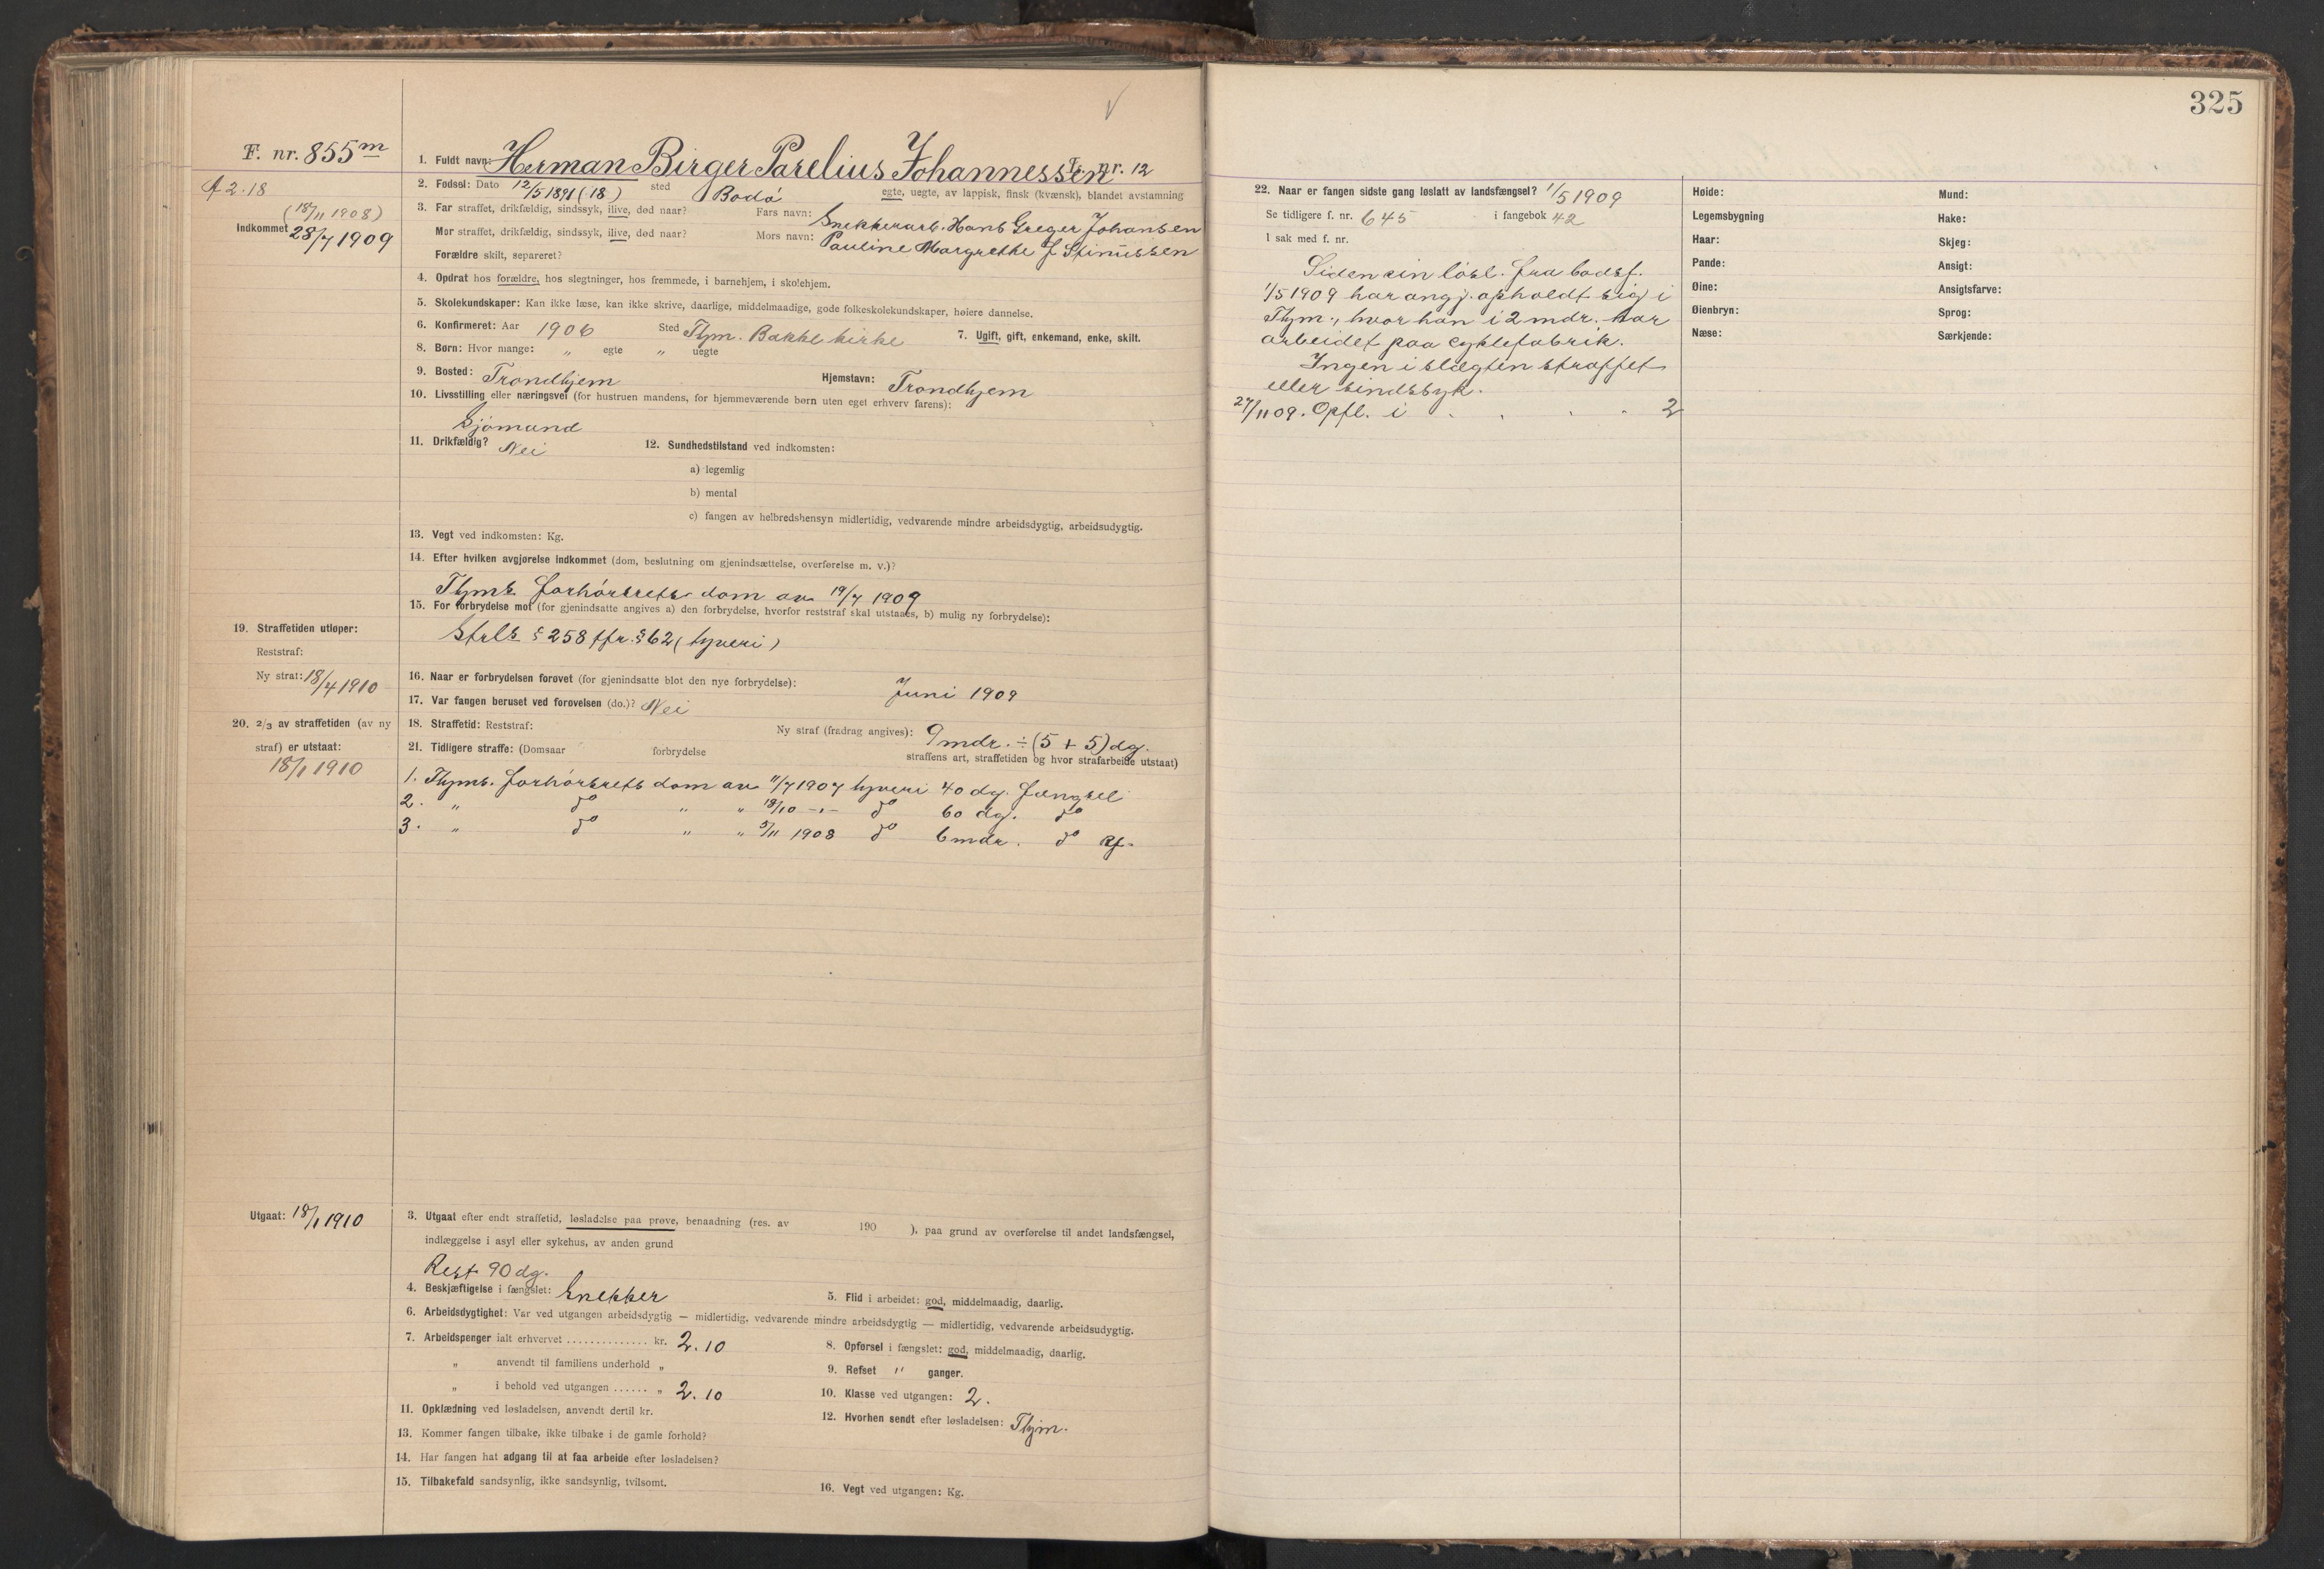 F. nr. 855 m
A 2. 18
(18/11 1908)
Indkommet 28/7 1909
1. Fuldt navn: Herman Birger Parelius Johannessen T. nr. 12
2. Fødsel: Dato 12/5 1891 (18) sted Bodø egte, uegte, av lappisk, finsk (kvænsk), blandet avstamning
3. Far straffet, drikfældig, sindssyk, ilive, død naar? Fars navn: Snekkerarb. Hans Greger Johansen
Mor straffet, drikfældig, sindssyk, ilive, død naar? Mors navn: Pauline Margrethe f.
Forældre skilt, separeret?
4. Opdrat hos forældre, hos slegtninger, hos fremmede, i barnehjem, i skolehjem.
5. Skolekundskaper: Kan ikke læse, kan ikke skrive, daarlige, middelmaadige, gode folkeskolekundskaper, høiere dannelse.
6. Konfirmeret: Aar 1906 Sted Thjm. Bakke kirke 7. Ugift, gift, enkemand, enke, skilt.
8. Børn: Hvor mange: „ egte „ uegte
9. Bosted: Trondhjem Hjemstavn: Trondhjem
10. Livsstilling eller næringsvei (for hustruen mandens, for hjemmeværende børn uten eget erhverv farens):
Sjømand
11. Drikfældig? Nei 12. Sundhedstilstand ved indkomsten:
a) legemlig
b) mental
c) fangen av helbredshensyn midlertidig, vedvarende mindre arbeidsdygtig, arbeidsudygtig.
13. Vegt ved indkomsten: Kg.
14. Efter hvilken avgjørelse indkommet (dom, beslutning om gjenindsættelse, overførelse m. v.)?
Thjms. forhørsrets dom av 19/7 1909
15. For forbrydelse mot (for gjenindsatte angives a) den forbrydelse, hvorfor reststraf skal utstaaes, b) mulig ny forbrydelse):
Strls § 258 jfr. § 62 (tyveri)
19. Straffetiden utløper:
Reststraf:
Ny straf: 18/4 1910
16. Naar er forbrydelsen forøvet (for gjenindsatte blot den nye forbrydelse): Juni 1909
17. Var fangen beruset ved forøvelsen (do.)? Nei
20. 2/3 av straffetiden (av ny
straf) er utstaat:
18/1 1910
18. Straffetid: Reststraf: Ny straf (fradrag angives): 9 mdr. ÷ (5 + 5) dg.
21. Tidligere straffe: (Domsaar forbrydelse straffens art, straffetiden og hvor strafarbeide utstaat)
1. Thjms. forhørsrets dom av 11/7 1907 tyveri 40 dg. fængsel
2. „ do „ „ 18/10 -„- do 60 dg. do
3. „ do „ „ 5/11 1908 do 6 mdr. do
Utgaat: 18/1 1910
3. Utgaat efter endt straffetid, løsladelse paa prøve, benaadning (res. av 190 ), paa grund av overførelse til andet landsfængsel,
indlæggelse i asyl eller sykehus, av anden grund
Rest 90 dg.
4. Beskjæftigelse i fængslet: Snekker 5. Flid i arbeidet: god, middelmaadig, daarlig.
6. Arbeidsdygtighet: Var ved utgangen arbeidsdygtig — midlertidig, vedvarende mindre arbeidsdygtig — midlertidig, vedvarende arbeidsudygtig.
7. Arbeidspenger ialt erhvervet .............. kr. 2.10 8. Opførsel i fængslet: god, middelmaadig, daarlig.
„ anvendt til familiens underhold „ 9. Refset " ganger.
„ i behold ved utgangen ...... „ 2.10 10. Klasse ved utgangen: 2.
11. Opklædning ved løsladelsen, anvendt dertil kr. 12. Hvorhen sendt efter løsladelsen: Thjm.
13. Kommer fangen tilbake, ikke tilbake i de gamle forhold?
14. Har fangen hat adgang til at faa arbeide efter løsladelsen?
15. Tilbakefald sandsynlig, ikke sandsynlig, tvilsomt.
16. Vegt ved utgangen: Kg.
325
22. Naar er fangen sidste gang løslatt av landsfængsel? 1/5 1909
Se tidligere f. nr. 645 i fangebok 42
I sak med f. nr.
Siden sin løsl. fra bodsf.
1/5 1909 har angj. opholdt sig i
Thjm., hvor han i 2 mdr. har
arbeidet paa cyklefabrik.
Ingen i slægten straffet
eller sindssyk.
27/11 09. Opfl. i . . . . 2
Høide:
Legemsbygning
Haar:
Pande:
Øine:
Øienbryn:
Næse:
Mund:
Hake:
Skjeg:
Ansigt:
Ansigtsfarve:
Sprog:
Særkjende: